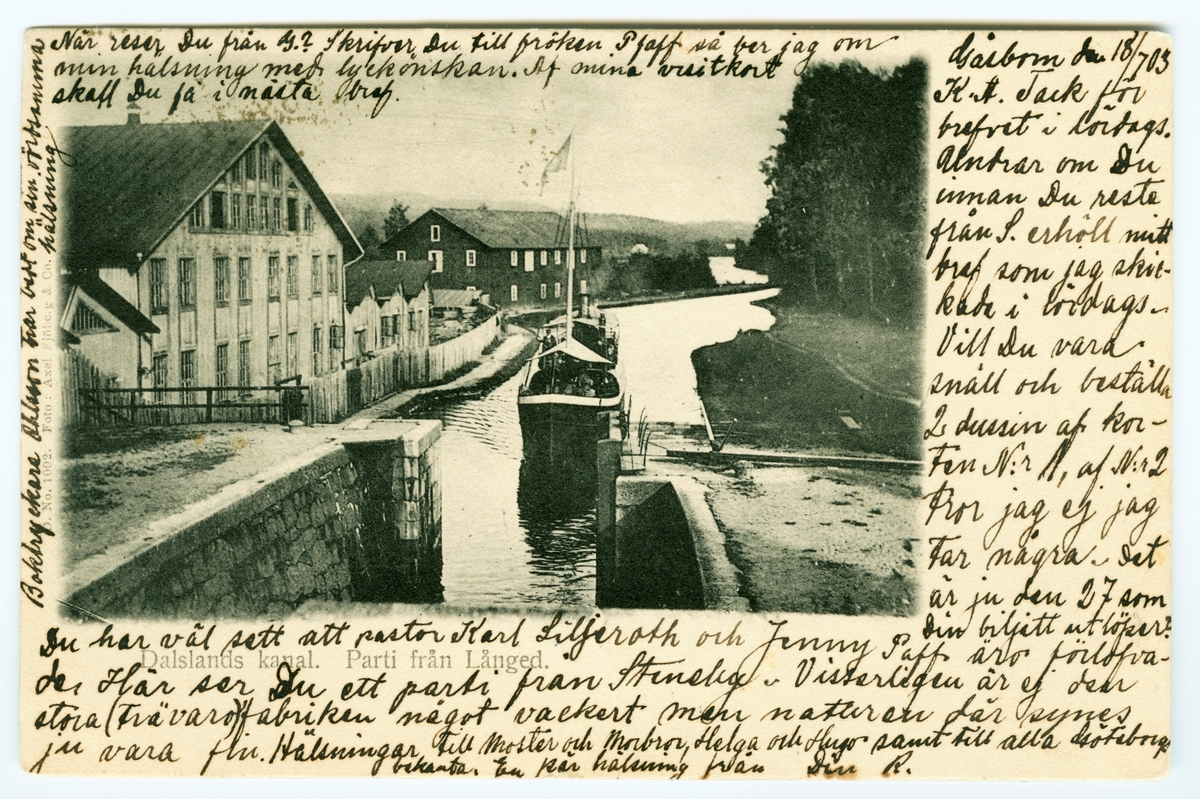 Gåsborn den 18/7 03
K. A. Tack för
brefvet i lördags.
Undrar om Du
innan Du reste
från S. erhöll mitt
bref som jag skic-
kade i lördags.
Vill Du vara
snäll och beställa
2 dussin af kor-
ten N:r 1, af N:r 2
tror jag ej jag
tar några. Det
är ju den 27 som
Din biljett utlöper?
Du har väl sett att pastor Karl Liljeroth och Jenny Pfaff äro förlofva-
de. Här ser Du ett parti från Steneby. Visserligen är ej den
stora (trävaro)fabriken något vackert men naturen där synes
ju vara fin. Hälsningar till Moster och Morbror, Helga och Hugo samt till alla Göteborgs
bekanta. En kär hälsning från Din R.
När reser Du från G.? Skrifver Du till fröken Pfaff så ber jag om
min hälsning med lyckönskan. Af mina visitkort
skall Du få i nästa bref.
Boktryckare Ohlson har bedt om sin vördsamma
hälsning
No. 1002. Foto: Axel Sjöberg & Co.
Dalslands kanal. Parti från Långed.